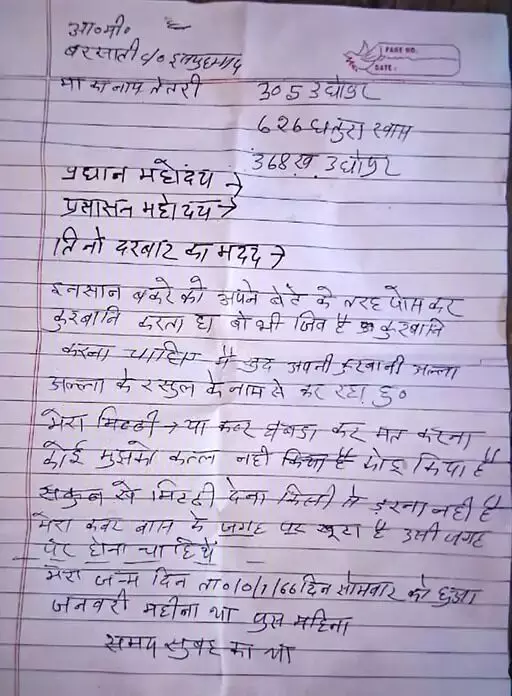 आ॰मी॰
बरसाती c/o
PAGE NO.
DATE:
मा का नाम तेतरी 305 उधोपुर
626 धतुरा खास
368 ख उधोपुर
प्रधान महोदय →
प्रसासन महोदय →
तिनो दरबार का मदद →
इनसान बकरे को अपने बेटे के तरह पोस कर
कुरबानि करता है वो भी जिव है कुरबानि
करना चाहिए मै खुद अपनी कुरबानी अल्ला
अल्ला के रसुल के नाम से कर रहा हु॰
मेरा मिटटी → या कबर घबडा कर मत करना
कोई मुझको कत्ल नही किया है
सकुन से मिटटी देना किसी से डरना नही है
मेरा कबर बास के जगह पर खूटा है उसी जगह
पर होना चाहिये
मेरा जन्म दिन ता॰ 10/1/66 दिन सोमवार को हुआ
जनवरी महीना था पुस महिना
समय सुबह का था